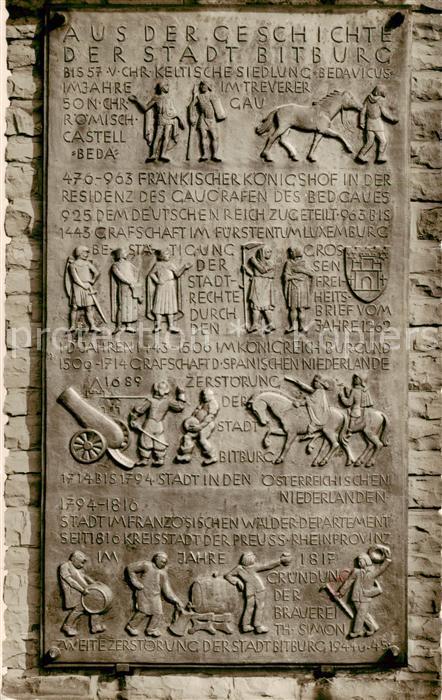 AUS DER GESCHICHTE
DER STADT BITBURG
BIS 57·V·CHR·KELTISCHE SIEDLUNG·BEDAVICUS·
IM JAHRE IM TREVERER
50 N·CHR GAU
RÖMISCH·
CASTELL
·BEDA·
476-963 FRÄNKISCHER KÖNIGSHOF IN DER
RESIDENZ DES GAUGRAFEN DES BEDGAUES
925 DEM DEUTSCHEN REICH ZUGETEILT·963 BIS
1443 GRAFSCHAFT IM FÜRSTENTUM LUXEMBURG
BESTÄTIGUNG GROS
DER SEN
STADT- FREI
RECHTE HEITS-
DURCH BRIEF VOM
DEN JAHRE 1262
IN JAHREN 1443-1506 IM KÖNIGREICH BURGUND
1506-1714 GRAFSCHAFT D·SPANISCHEN NIEDERLANDE
1689 ZERSTÖRUNG
DER
STADT
BITBURG
1714 BIS 1794 STADT IN DEN ÖSTERREICHISCHEN
NIEDERLANDEN
1794-1816
STADT IM FRANZÖSISCHEN WÄLDER-DEPARTEMENT
SEIT 1816 KREISSTADT DER PREUSS·RHEINPROVINZ
IM JAHRE 1817
GRÜNDUNG
DER
BRAUEREI
TH·SIMON
ZWEITE ZERSTÖRUNG DER STADT BITBURG 1944 u·45